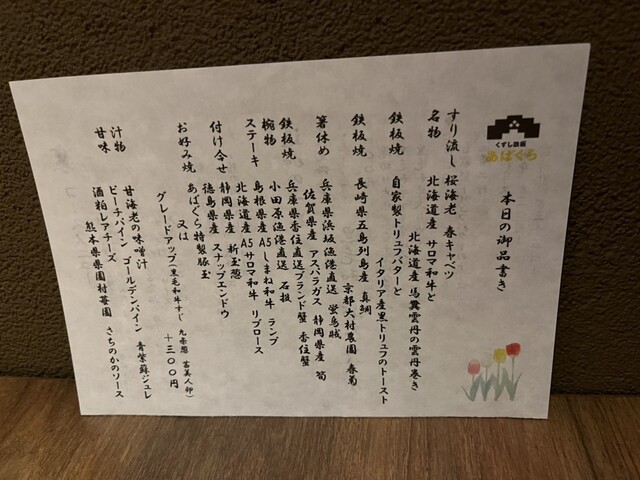 くずし鉄板
あばぐら
本日の御品書き
すり流し 桜海老 春キャベツ
名物 北海道産 サロマ和牛と
北海道産 馬糞雲丹の雲丹巻き
鉄板焼 自家製トリュフバターと
イタリア産黒トリュフのトースト
鉄板焼 長崎県五島列島産 真鯛
京都大村農園 春菊
箸休め 兵庫県浜坂漁港直送 蛍烏賊
佐賀県産 アスパラガス 静岡県産 筍
鉄板焼 兵庫県香住直送ブランド蟹 香住蟹
椀物 小田原漁港直送 石投
ステーキ 島根県産A5しまね和牛 ランプ
北海道産A5サロマ和牛 リブロース
付け合せ 静岡県産 新玉葱
徳島県産 スナップエンドウ
お好み焼 あばぐら特製豚玉
又は
グレードアップ(黒毛和牛すじ 九条葱 茜美人卵)
+三〇〇円
汁物 甘海老の味噌汁
甘味 ピーチパイン ゴールデンパイン 青紫蘇ジュレ
酒粕レアチーズ
熊本県県園村苺園 さちのかのソース